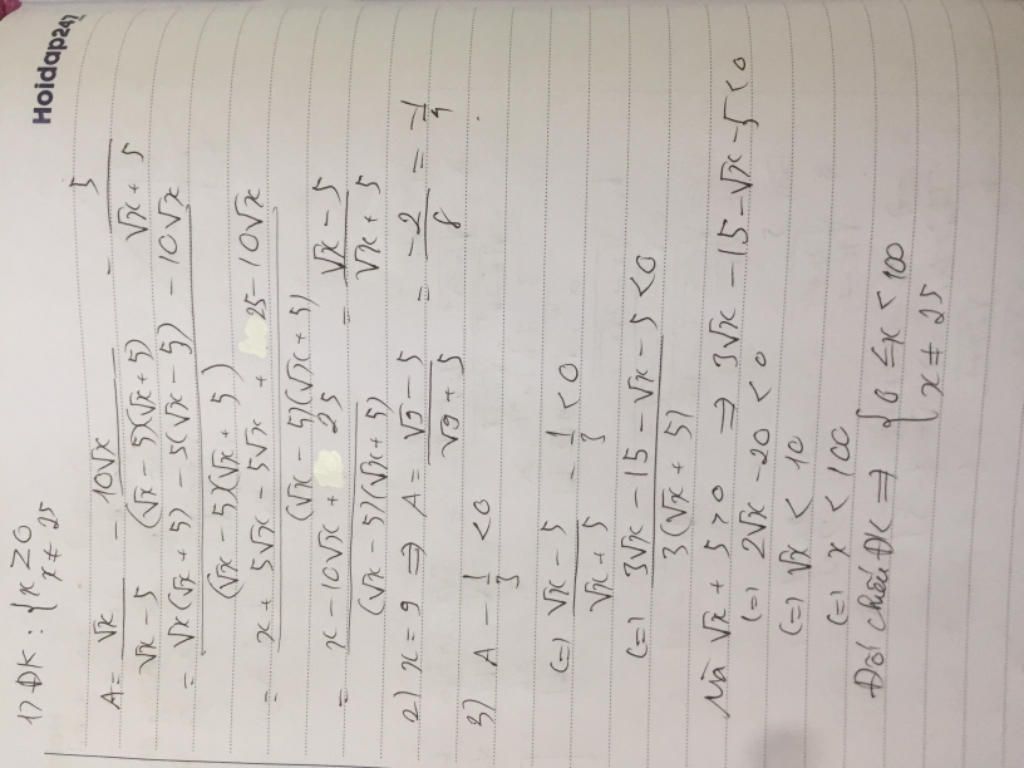 Hoidap247
1) ĐK : { x ≥ 0
x ≠ 25
A = √x / (√x - 5) - 10√x / ((√x - 5)(√x + 5)) - 5 / (√x + 5)
= (√x(√x + 5) - 5(√x - 5) - 10√x) / ((√x - 5)(√x + 5))
= (x + 5√x - 5√x + 25 - 10√x) / ((√x - 5)(√x + 5))
= (x - 10√x + 25) / ((√x - 5)(√x + 5)) = (√x - 5) / (√x + 5)
2) x = 9 ⇒ A = (√9 - 5) / (√9 + 5) = -2 / 8 = -1/4
3) A - 1/3 < 0
(=) (√x - 5) / (√x + 5) - 1/3 < 0
(=) (3√x - 15 - √x - 5) / (3(√x + 5)) < 0
Mà √x + 5 > 0 ⇒ 3√x - 15 - √x - 5 < 0
(=) 2√x - 20 < 0
(=) √x < 10
(=) x < 100
Đối chiếu ĐK ⇒ { 0 ≤ x < 100
x ≠ 25